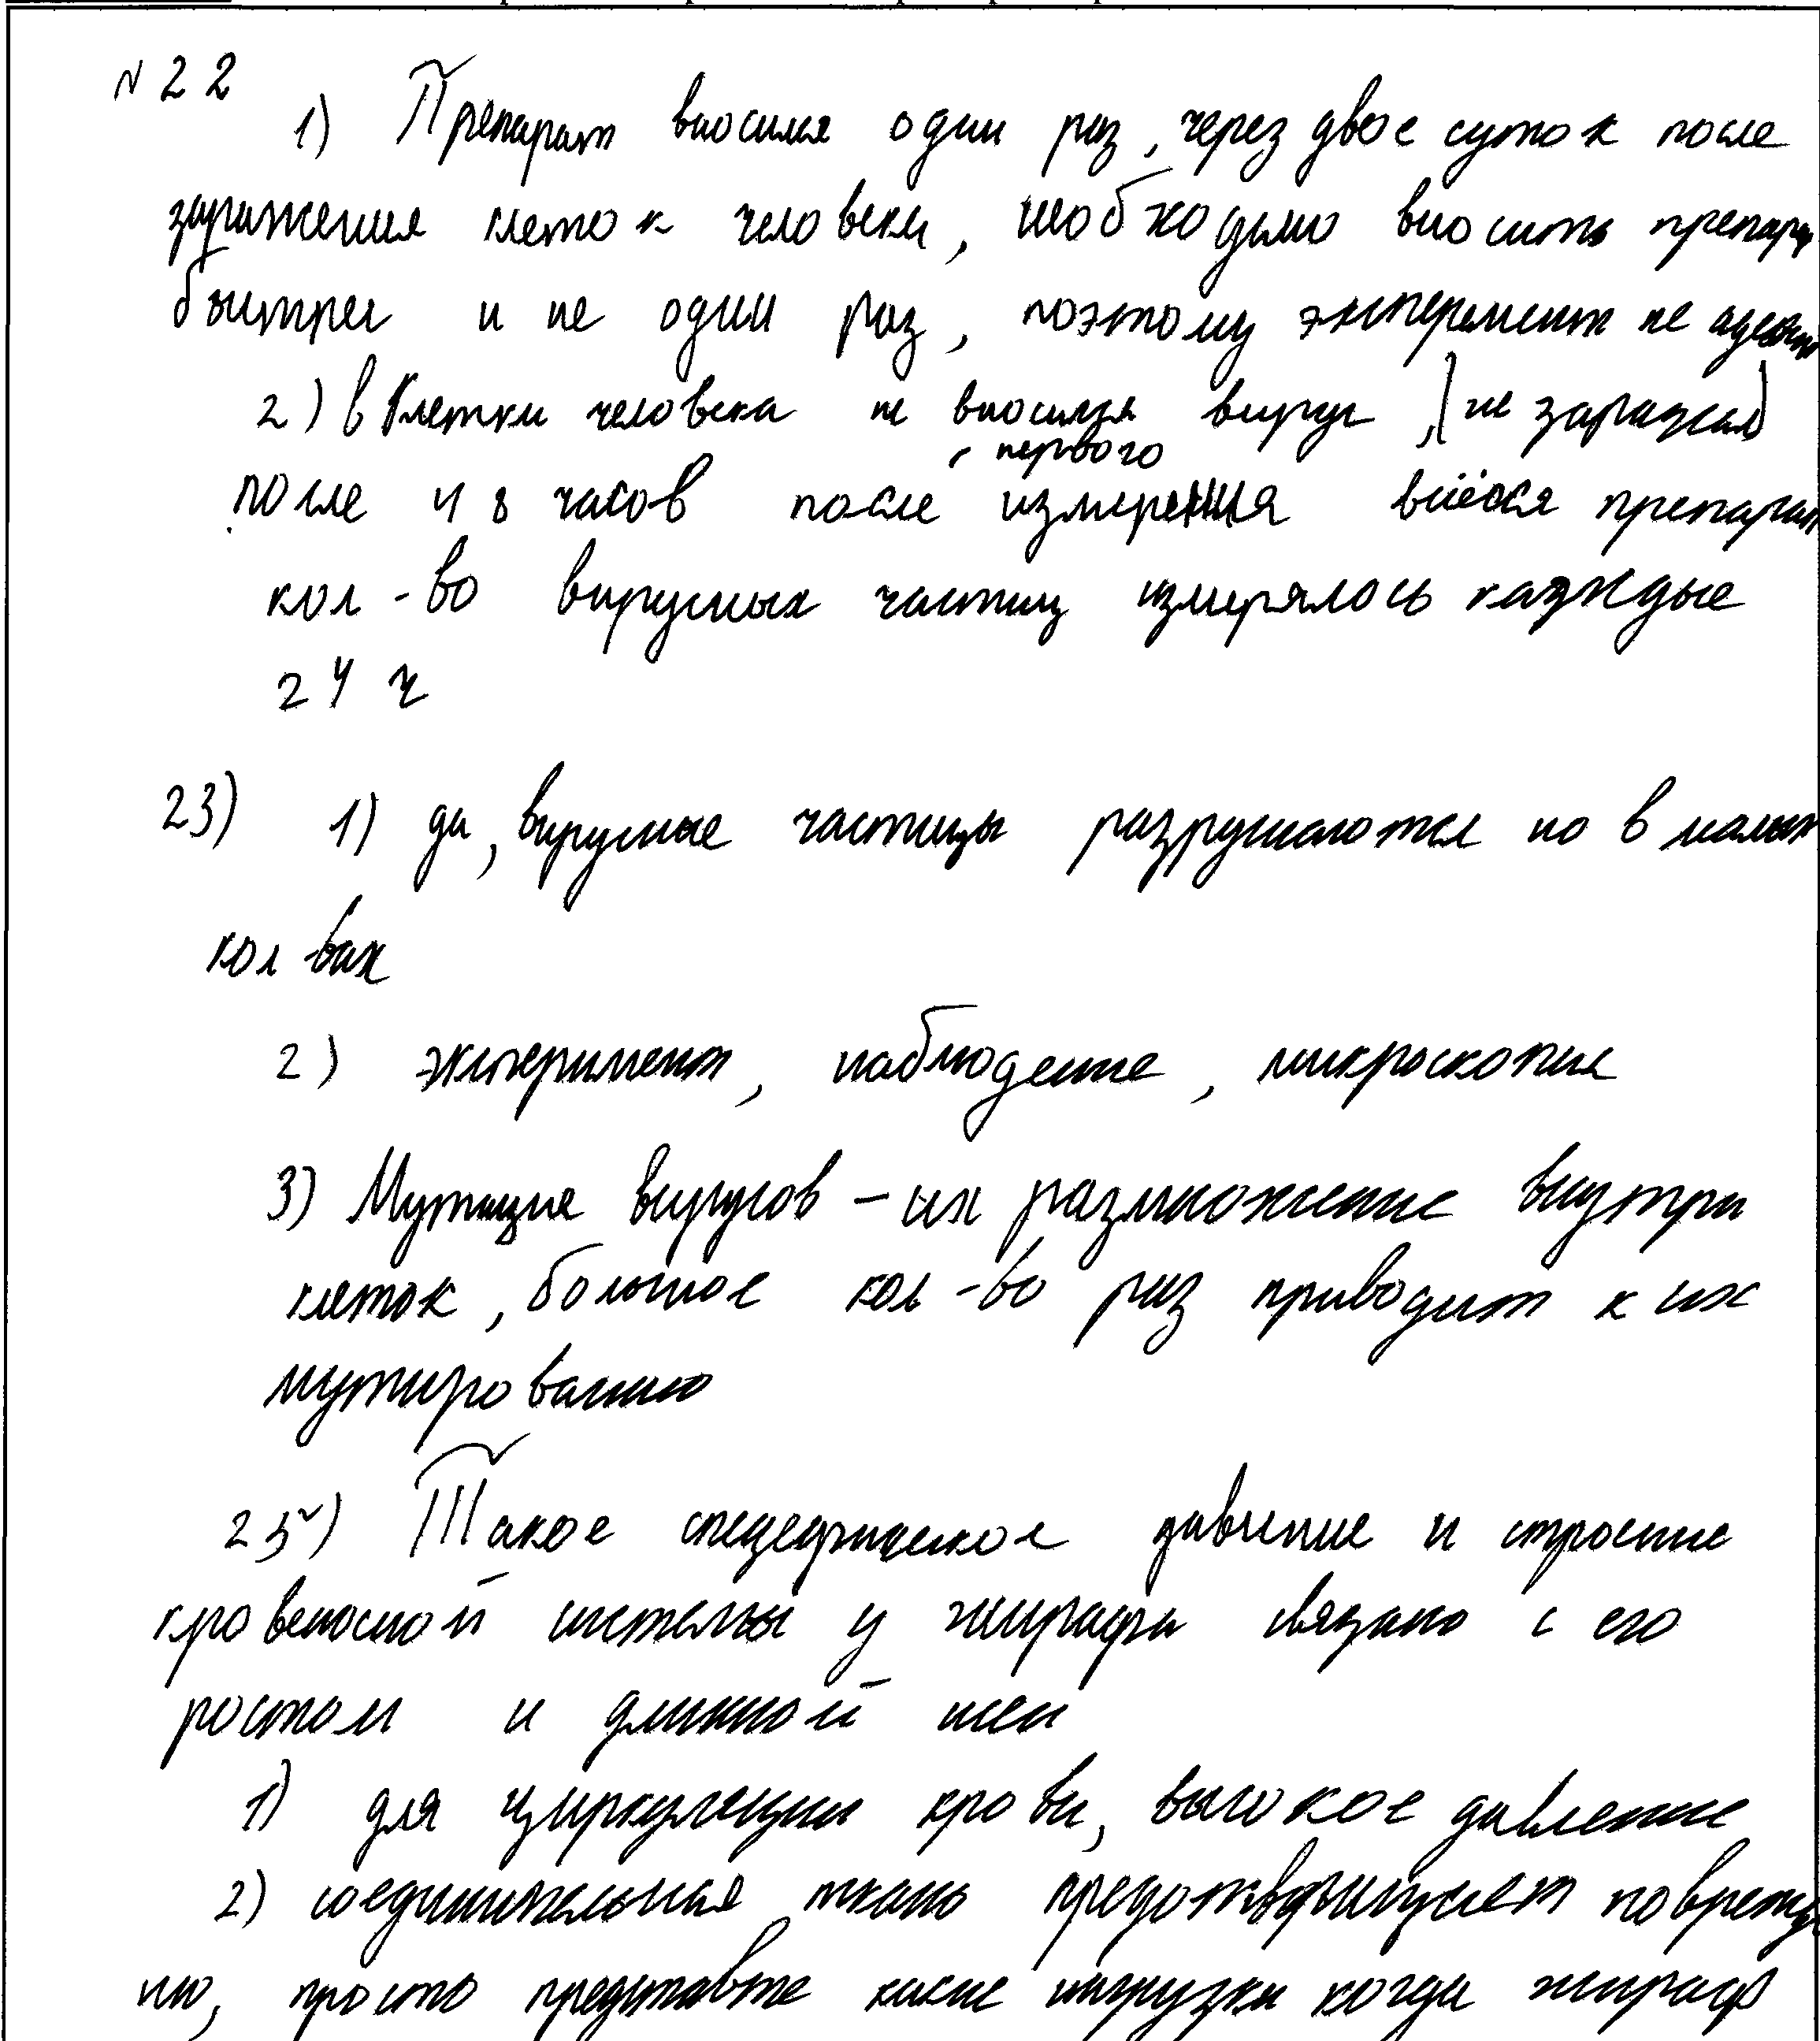 № 22
1) Препарат вносился один раз, через двое суток после
заражения клеток человека, необходимо вносить препара
быстрее и не один раз, поэтому эксперемент не адекват
2) в Клетки человека не вносился вирус, (не заражал)
первого
после 48 часов после измерения внёсся препарат
кол-во вирусных частиц измерялось каждые
24 ч
23) 1) да, вирусные частицы разрушаются но в малых
кол-вах
2) эксперимент, наблюдение, микроскопия
3) Мутация вирусов - их размножение внутри
клеток, большое кол-во раз приводит к их
мутированию
25) Такое специфическое давление и строение
кровеносной системы у жирафа связано с его
ростом и длинной шеи
1) для циркуляции крови, высокое давление
2) соединительная ткань повреж
ию, просто представте какие нагрузки когда жираф